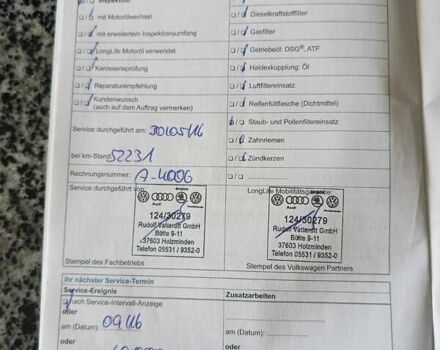 Inspektion
mit Motorölwechsel
mit erweitertem Inspektionsumfang
LongLife Motoröl verwendet
Karosserieprüfung
Reparaturempfehlung
Kundenwunsch
(auch auf dem Auftrag vermerken)
Service durchgeführt am: 30/05/16
bei km-Stand: 52231
Rechnungsnummer: A-4006
Service durchgeführt von:
Audi
124/30279
Rudolf Vatterott GmbH
Bülte 9-11
37603 Holzminden
Telefon 05531 / 9352-0
Stempel des Fachbetriebs
Dieselkraftstofffilter
Gasfilter
Getriebeöl: DSG®, ATF
Haldexkupplung: Öl
Luftfiltereinsatz
Reifenfüllflasche (Dichtmittel)
Staub- und Pollenfiltereinsatz
Zahnriemen
Zündkerzen
LongLife Mobilitätsgarantie:
Audi
124/30279
Rudolf Vatterott GmbH
Bülte 9-11
37603 Holzminden
Telefon 05531 / 9352-0
Stempel des Volkswagen Partners
Ihr nächster Service-Termin
Service-Ereignis
nach Service-Intervall-Anzeige
oder
am (Datum): 09/16
oder
Zusatzarbeiten
am (Datum):
oder